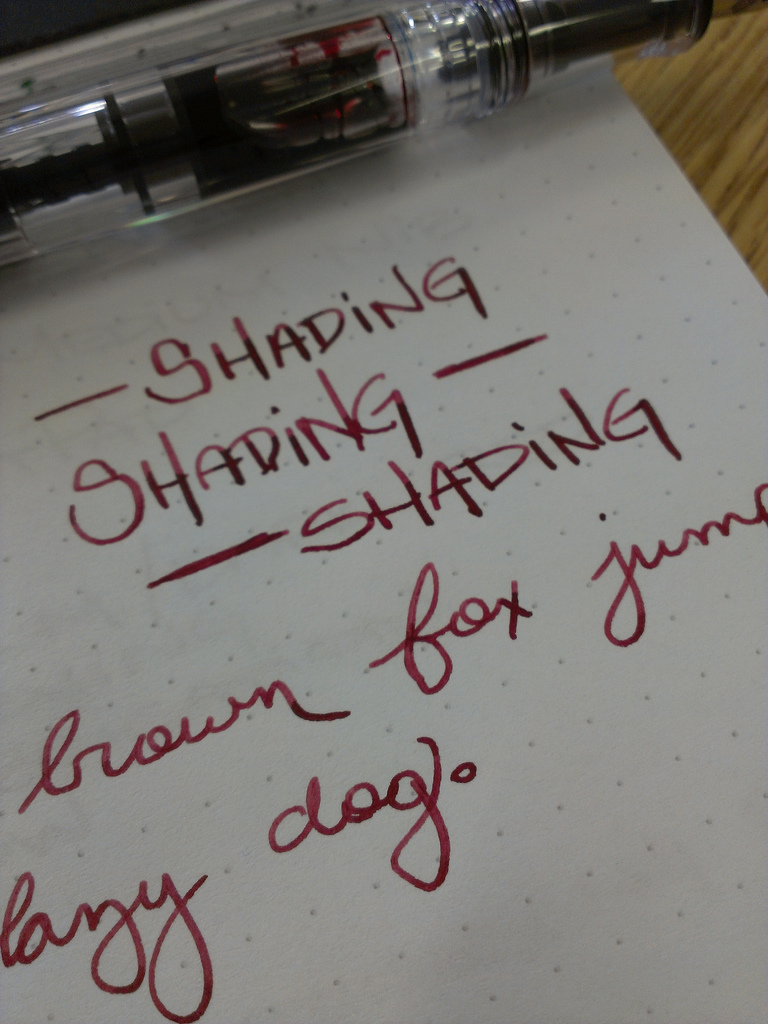 — SHADING
SHADING —
— SHADING
brown fox jump
lazy dog.